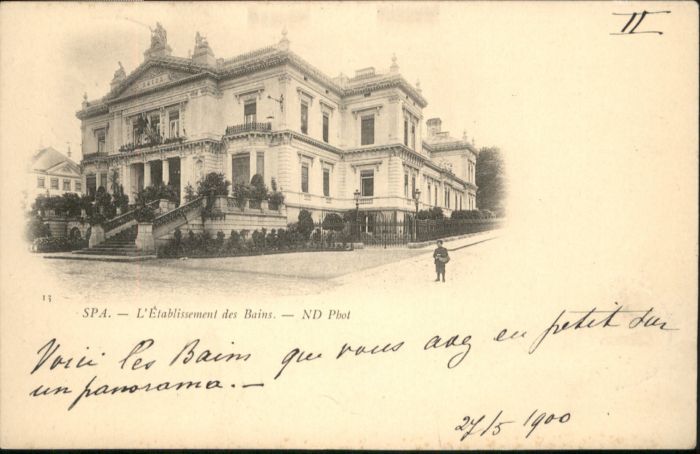 II
13
SPA. — L'Établissement des Bains. — ND Phot
Voici les Bains que vous avez en petit sur
un panorama. —
27/5 1900